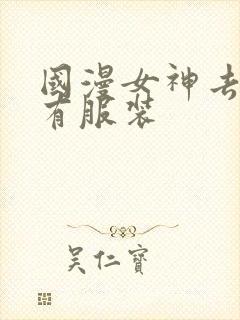 國漫女神去
有服裝
吴仁寶